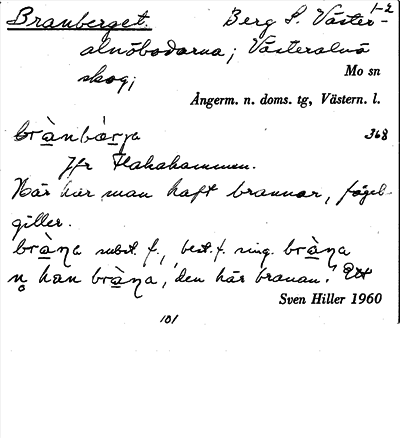 Branberget. Berg S. Väster- 1-2
alnöbodarna; Västeralnö
skog;
Mo sn
Ångerm. n. doms. tg, Västern. l.
brànbàrja 368
Jfr Flakahammen.
Här har man haft brannar, fågel-
giller.
bràna subst. f., best. f. sing. bràna
n han bràna, den här branan.
Sven Hiller 1960
101